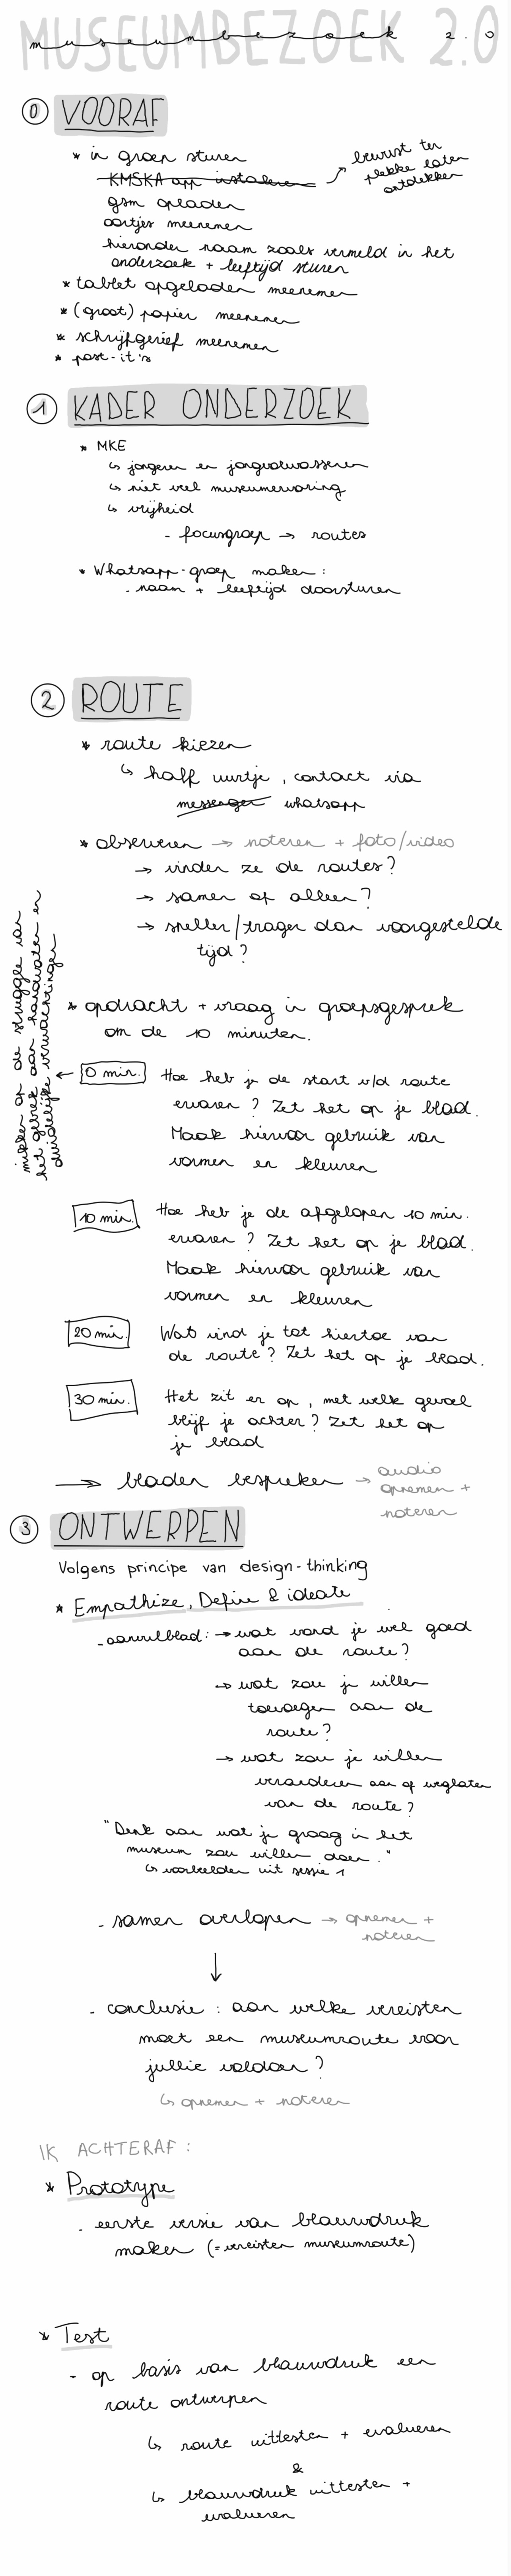 MUSEUMBEZOEK 2.0
museumbezoek 2.0
0 VOORAF
* in groep sturen
KMSKA app instaleren → bewust ter plekke laten ontdekken
gsm opladen
oortjes meenemen
hieronder naam zoals vermeld in het
onderzoek + leeftijd sturen
* tablet opgeladen meenemen
* (groot) papier meenemen
* schrijfgerief meenemen
* post-it's
1 KADER ONDERZOEK
* MKE
↳ jongeren en jongvolwassenen
↳ niet veel museumervaring
↳ vrijheid
- focusgroep → routes
* Whatsapp-groep maken:
- naam + leeftijd doorsturen
2 ROUTE
* route kiezen
↳ half uurtje, contact via
messenger whatsapp
* observeren → noteren + foto/video
→ vinden ze de routes?
→ samen of alleen?
→ sneller/trager dan voorgestelde
tijd?
* opdracht + vraag in groepsgesprek
om de 10 minuten.
mikken op de struggle van
het gebrek aan handvaten en
duidelijke verwachtingen
← 0 min. Hoe heb je de start v/d route
ervaren? Zet het op je blad.
Maak hiervoor gebruik van
vormen en kleuren
10 min. Hoe heb je de afgelopen 10 min.
ervaren? Zet het op je blad.
Maak hiervoor gebruik van
vormen en kleuren
20 min. Wat vind je tot hiertoe van
de route? Zet het op je blad.
30 min. Het zit er op, met welk gevoel
blijf je achter? Zet het op
je blad
→ bladen bespreken → audio
opnemen +
noteren
3 ONTWERPEN
Volgens principe van design-thinking
* Empathize, Define & ideate
- aanvulblad: → wat vond je wel goed
aan de route?
→ wat zou je willen
toevoegen aan de
route?
→ wat zou je willen
veranderen aan of weglaten
van de route?
"Denk aan wat je graag in het
museum zou willen doen."
↳ voorbeelden uit sessie 1
- samen overlopen → opnemen +
noteren
↓
- conclusie: aan welke vereisten
moet een museumroute voor
jullie voldoen?
↳ opnemen + noteren
IK ACHTERAF:
* Prototype
- eerste versie van blauwdruk
maken (= vereisten museumroute)
* Test
- op basis van blauwdruk een
route ontwerpen
↳ route uittesten + evalueren
&
↳ blauwdruk uittesten +
evalueren